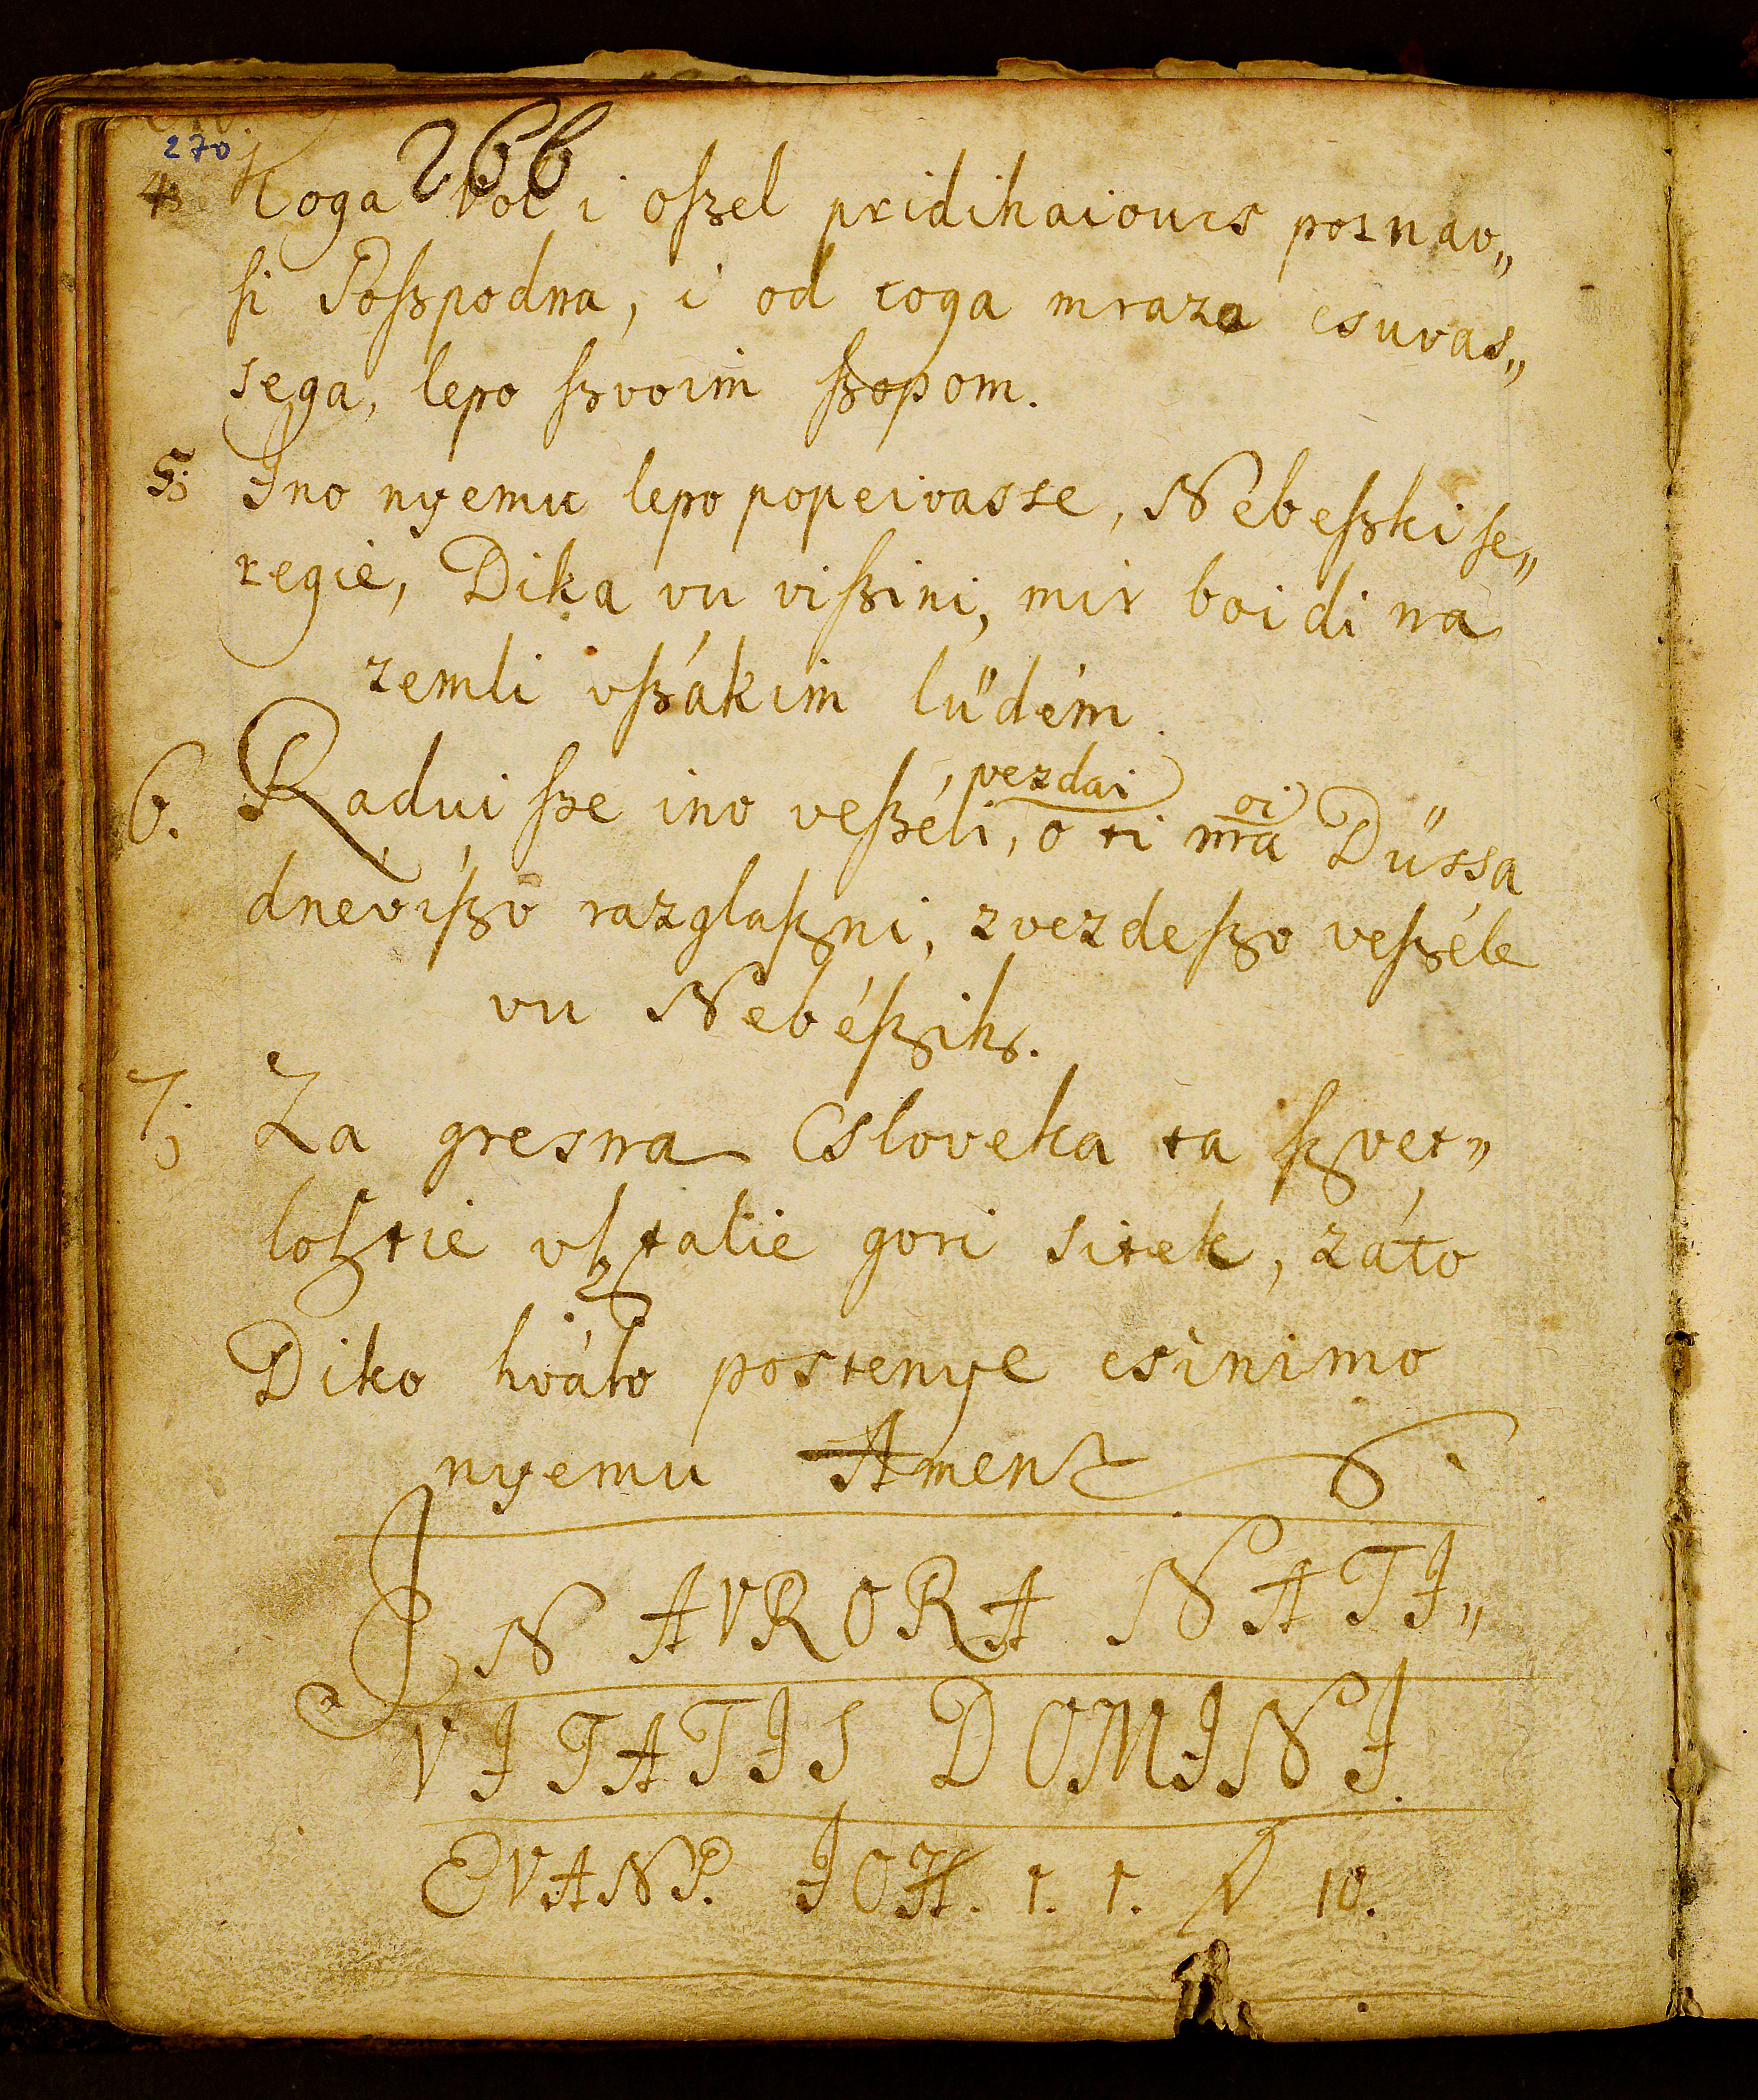 270
266
4. Koga vol i oſzel pridihaioucs posnav„
ſi Goſzpodna, i od toga mraza csuvas„
sega, lepo ſzvoim ſzopom.
5; Ino nyemu lepo popeivasse, Nebeſzki ſe„
regie, Dika vu viſzini, mir boidi na
zemli vſzákim lűdém.
, vezdai oi
6. Radui ſze ino veſzéli, o ti ma Düssa
dneviſzo razglaſzni, zvezdeſzo veſzéle
vu Nebéſzih.
7; Za gresna Csloveka ta ſzvet„
loſztie vſztalie gori sitek, záto
Diko hválo postenye csinimo
nyemu Amen
IN AVRORA NATI„
VITATIS DOMINI.
EVANG. IOH. 1. 1. 10.